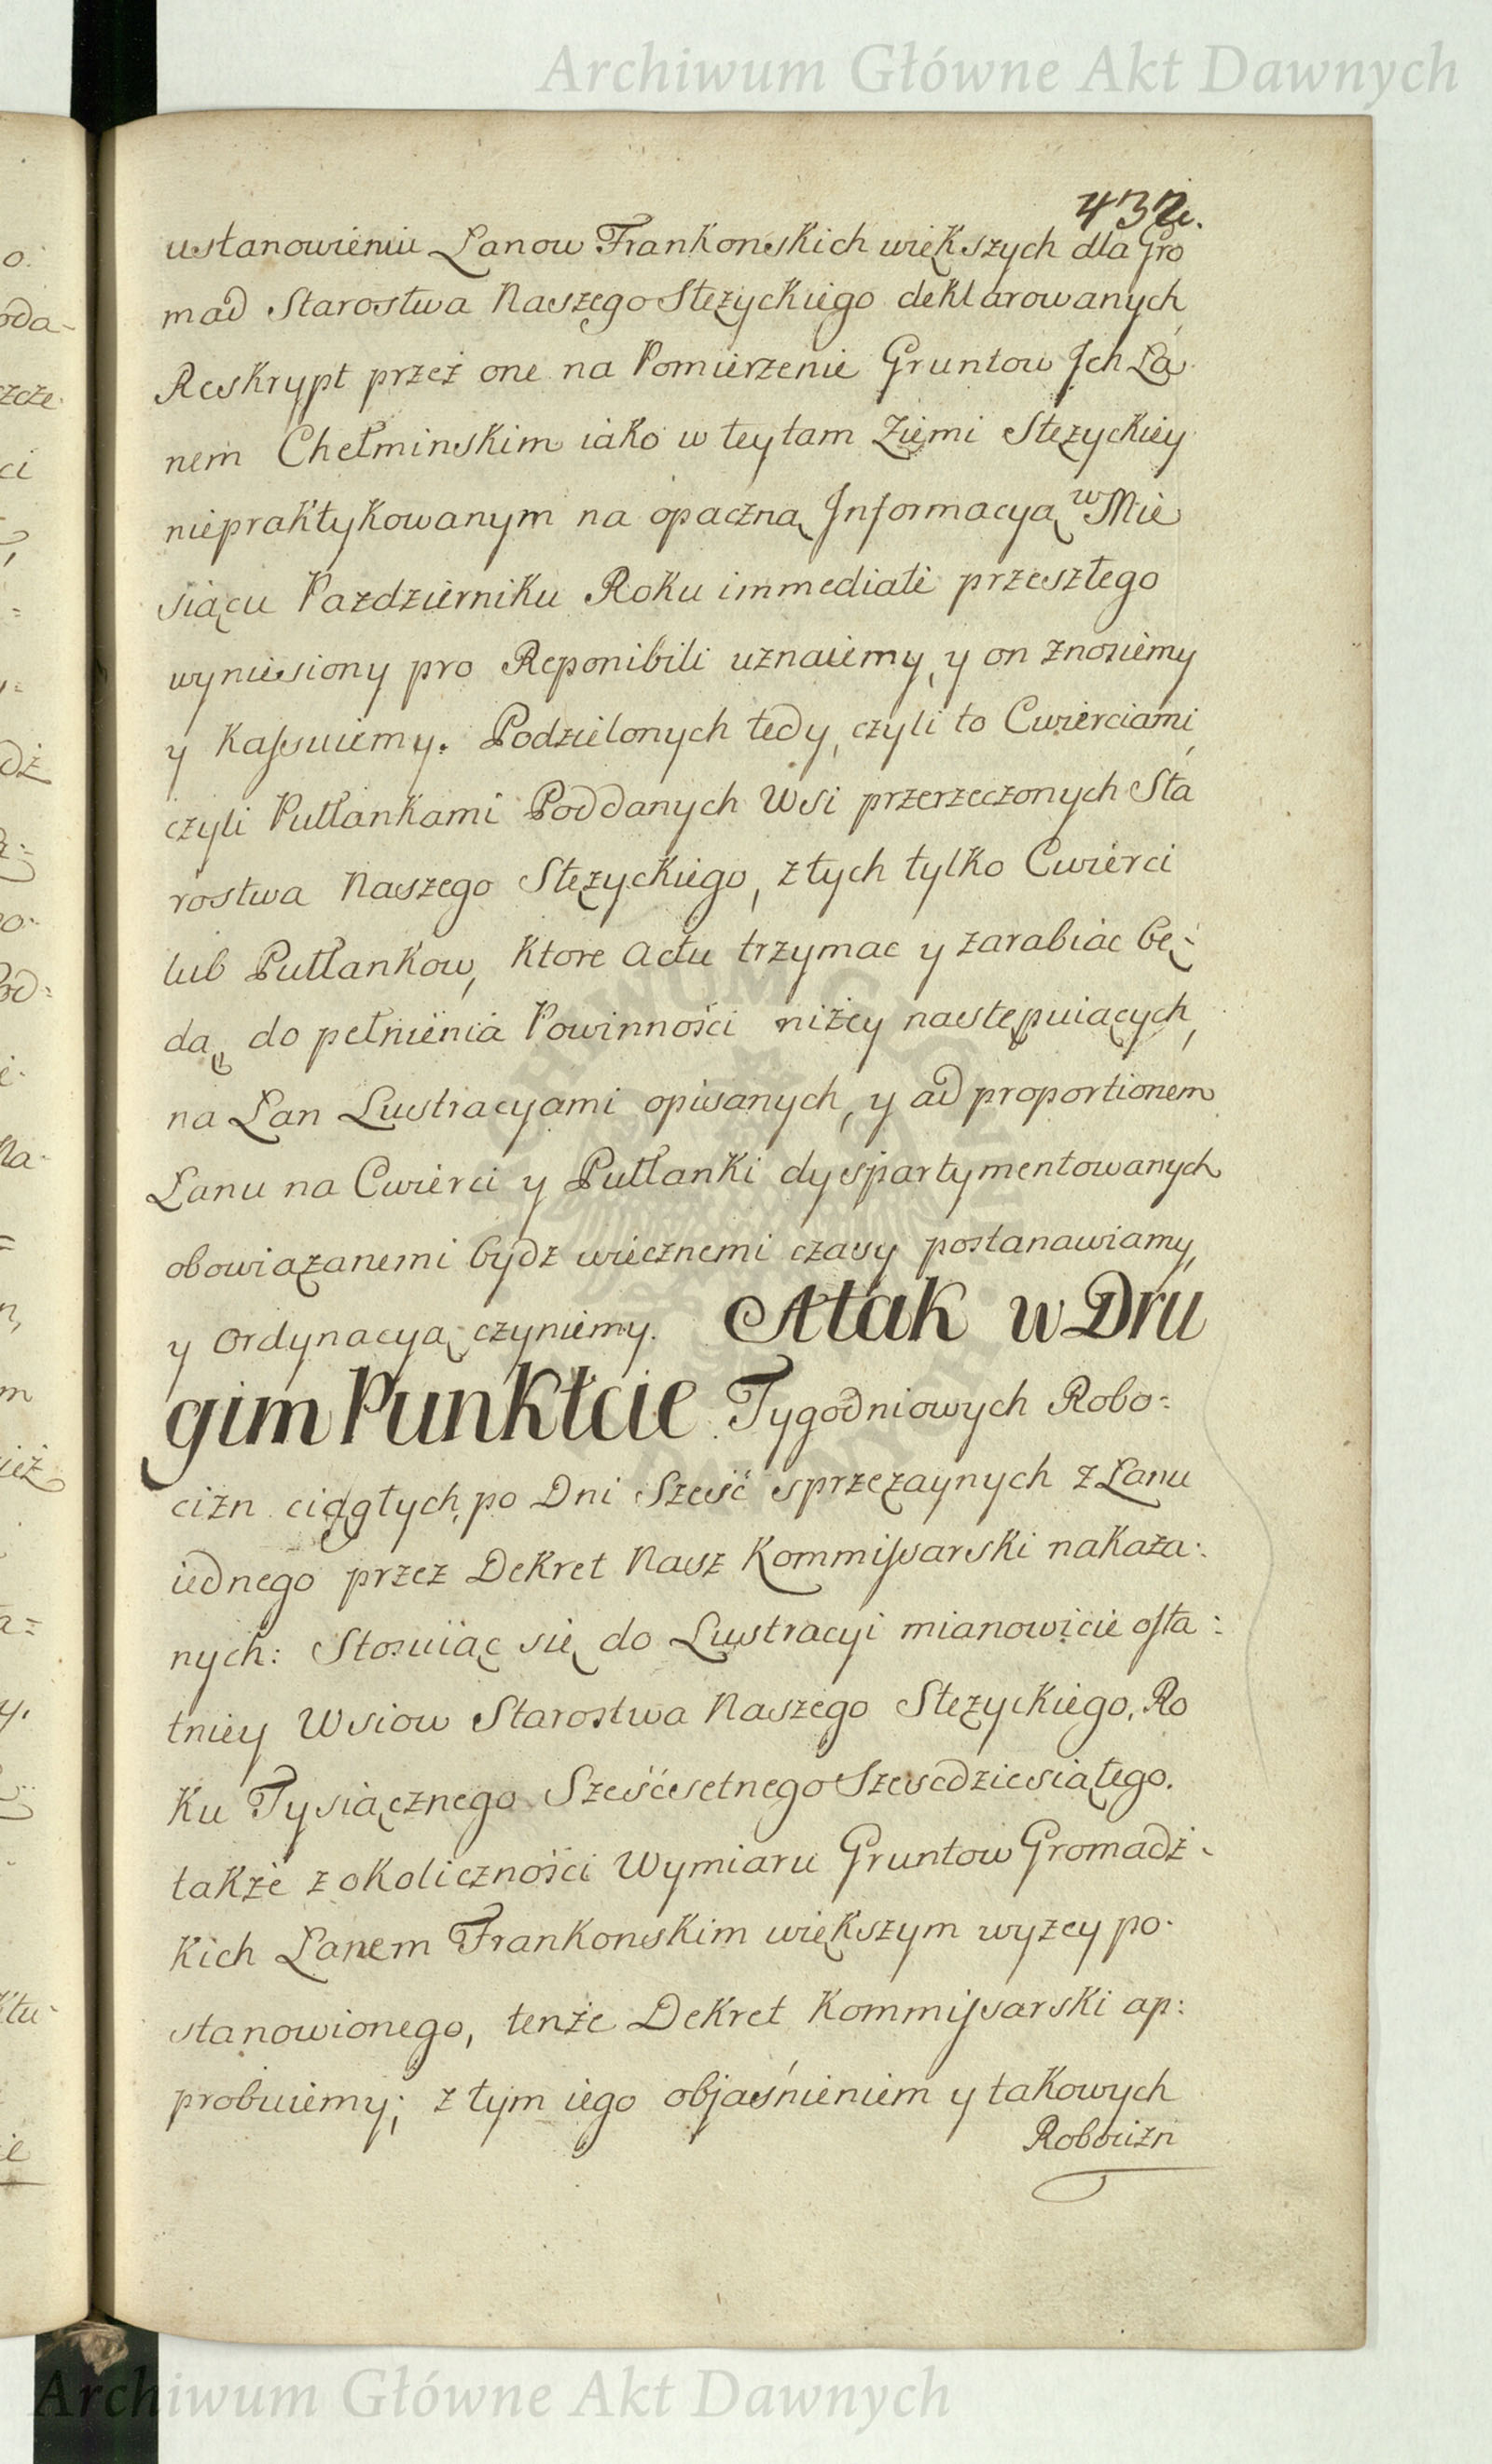 Archiwum Główne Akt Dawnych
432.
ustanowieniu Łanow Frankonskich większych dla Gro
mad Starostwa Naszego Stęzyckiego deklarowanych,
Reskrypt przez one na Pomierzenie Gruntow Jch Ła
nem Chełminskim iako w teytam Ziemi Stęzyckiey
niepraktykowanym na opaczną Jnformacyą w Mie
siącu Pazdzierniku Roku immediate przeszłego
wyniesiony pro Reponibili uznaiemy, y on znosiemy
y Kassuiemy. Podzielonych tedy, czyli to Cwierciami,
czyli Pułłankami Poddanych Wsi przerzeczonych Sta
rostwa Naszego Stęzyckiego, z tych tylko Cwierci
lub Pułłankow, Ktore actu trzymac y zarabiac bę-
dą, do pełnienia Powinności niżey następuiących,
na Łan Lustracyami opisanych, y ad proportionem
Łanu na Cwierci y Pułłanki dyspartymentowanych
obowiązanemi bydz wiecznemi czasy postanawiamy,
y Ordynacyą czyniemy. Atak w Dru
gim Punkcie Tygodniowych Robo=
cizn ciągłych, po Dni Sześć sprzęzaynych z Łanu
iednego przez Dekret Nasz Kommissarski nakaza:
nych: Stosuiąc się do Lustracyi mianowicie osta:
tniey Wsiow Starostwa Naszego Stęzyckiego, Ro
ku Tysiącznego Sześćsetnego Szescdziesiątego.
także z okoliczności Wymiaru Gruntow Gromadz-
kich Łanem Frankonskim większym wyzey po-
stanowionego, tenże Dekret Kommissarski ap:
probuiemy; z tym iego objaśnieniem y takowych
Robocizn
Archiwum Główne Akt Dawnych